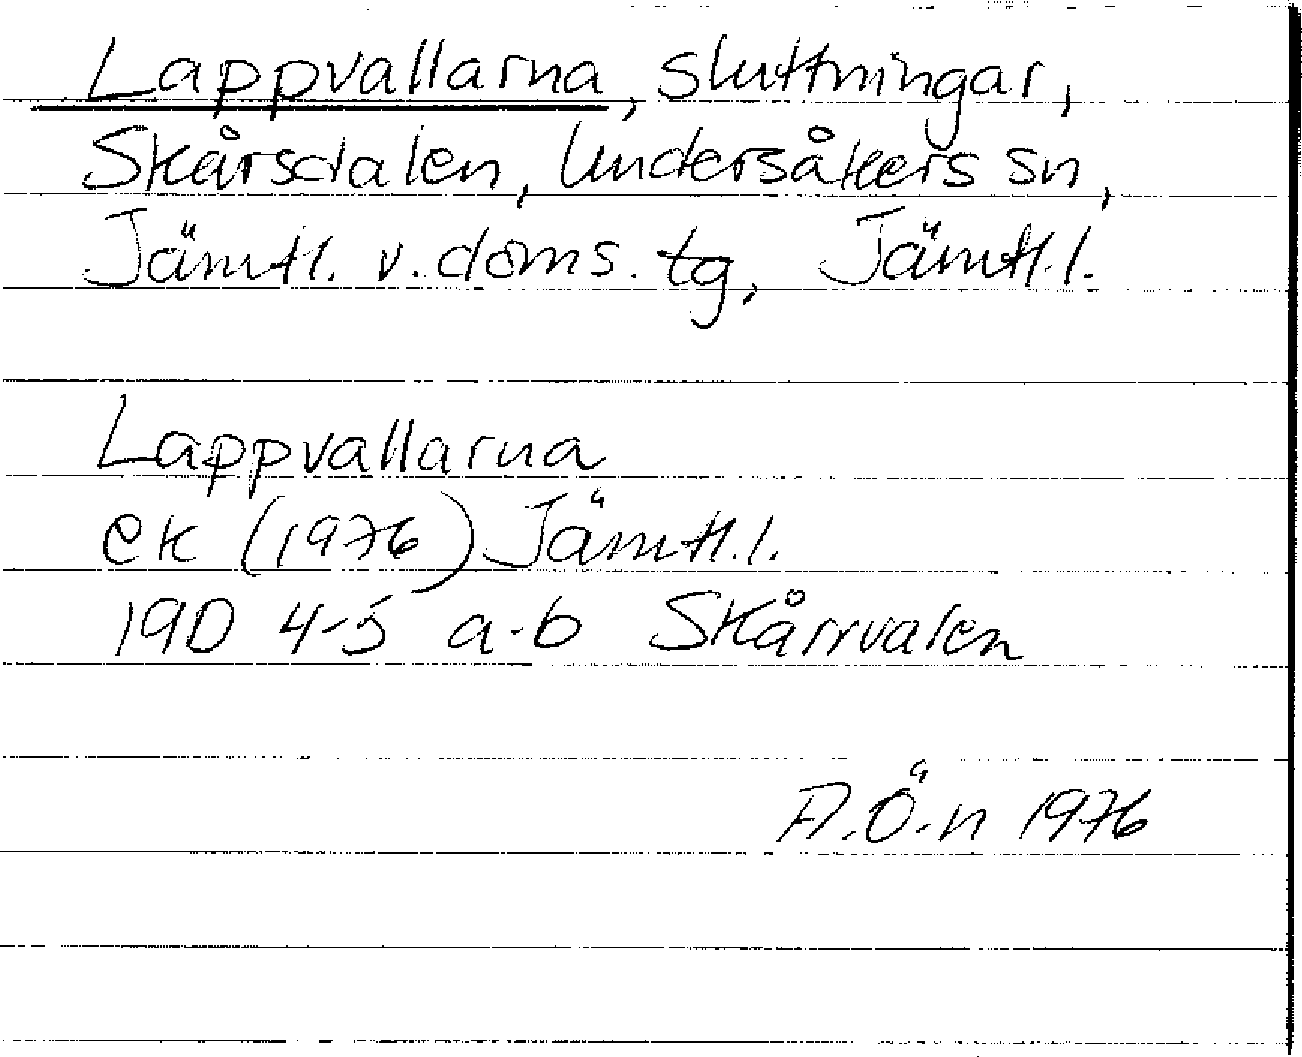 Lappvallarna, sluttningar,
Skårsdalen, Undersåkers sn,
Jämtl. v. doms. tg, Jämtl. l.
Lappvallarna
ek (1976) Jämtl. l.
19D 4-5 a-b Skårvalen
A.Ö-n 1976